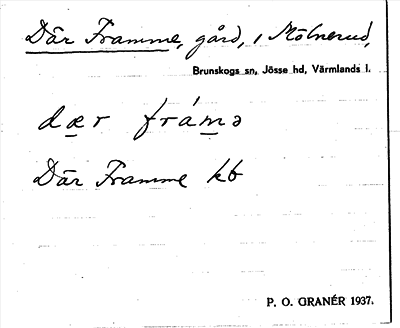 Där Framme, gård, i Mölnerud,
Brunskogs sn, Jösse hd, Värmlands l.
dær fráma
Där Framme kb
P. O. GRANÉR 1937.